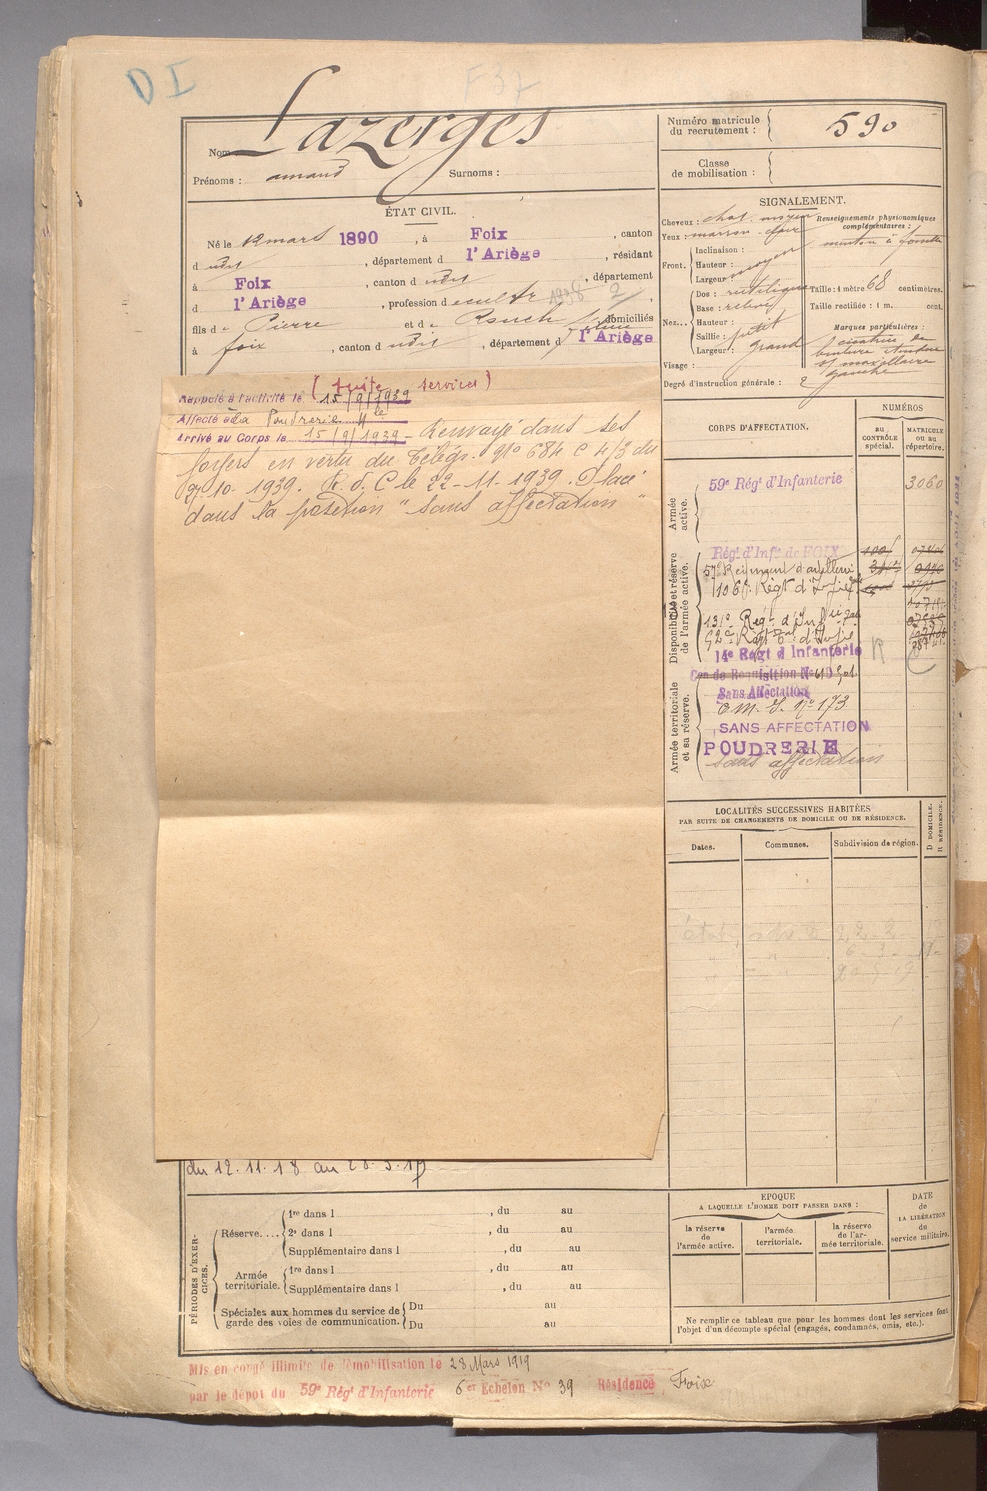 D I
F 37
Nom Lazerges
Prénoms : amand Surnoms :
ÉTAT CIVIL.
Né le 12 mars 1890, à Foix, canton
d udit, département d l'Ariège, résidant
à Foix, canton d udit, département
d l'Ariège, profession de cult 1938 2,
fils de Pierre et de Rouch domiciliés
à foix, canton d udit, département d l'Ariège
(suite services)
Rappelé à l'activité le 15/9/1939
Affecté à la Poudrerie Nle
Arrivé au Corps le 15/9/1939 - Renvoyé dans ses
foyers en vertu du Télégr. N° 684 C 4/3 du
10. 1939. R. d. C le 22-11.1939. Placé
dans la position "sans affectation"
du 12.11.18 au
PÉRIODES D'EXERCICES.
Réserve.... 1re dans l , du au
2e dans l , du au
Supplémentaire dans l , du au
Armée territoriale. 1re dans l , du au
Supplémentaire dans l , du au
Spéciales aux hommes du service de garde des voies de communication. Du au
Du au
Mis en congé illimité de démobilisation le 28 Mars 1919
par le dépôt du 59e Régt d'Infanterie 6er Echelon No 39 Résidence Foix
Numéro matricule du recrutement : 590
Classe de mobilisation :
SIGNALEMENT.
Cheveux : chat. moyen
Yeux : marron clair
Front. Inclinaison :
Hauteur : moyen
Largeur :
Nez... Dos : rectiligne
Base : relevé
Hauteur :
Saillie : petit
Largeur : grand
Visage :
Degré d'instruction générale : 2
Renseignements physionomiques complémentaires :
menton à fossette
Taille : 1 mètre 68 centimètres.
Taille rectifiée : 1 m. cent.
Marques particulières :
cicatrice de
maxillaire
gauche
CORPS D'AFFECTATION.
NUMÉROS
au CONTRÔLE spécial.
MATRICULE ou au répertoire.
Armée active.
59e Régt d'Infanterie 3060
Disponibilité et réserve de l'armée active.
Régt d'Infie de FOIX
57e Régiment d'artillerie
116e Régt d'Infie
131e Régt d'Infie
14e Régt d'Infanterie R C
Armée territoriale et sa réserve.
Cen de Réquisition No
Sans Affectation
C.M. I. No 173
SANS AFFECTATION
POUDRERIE
sans affectation
LOCALITÉS SUCCESSIVES HABITÉES
PAR SUITE DE CHANGEMENTS DE DOMICILE OU DE RÉSIDENCE.
Dates. Communes. Subdivision de région. D DOMICILE. R RÉSIDENCE.
EPOQUE
A LAQUELLE L'HOMME DOIT PASSER DANS :
la réserve de l'armée active.
l'armée territoriale.
la réserve de l'armée territoriale.
DATE de LA LIBÉRATION du service militaire.
Ne remplir ce tableau que pour les hommes dont les services font
l'objet d'un décompte spécial (engagés, condamnés, omis, etc.).